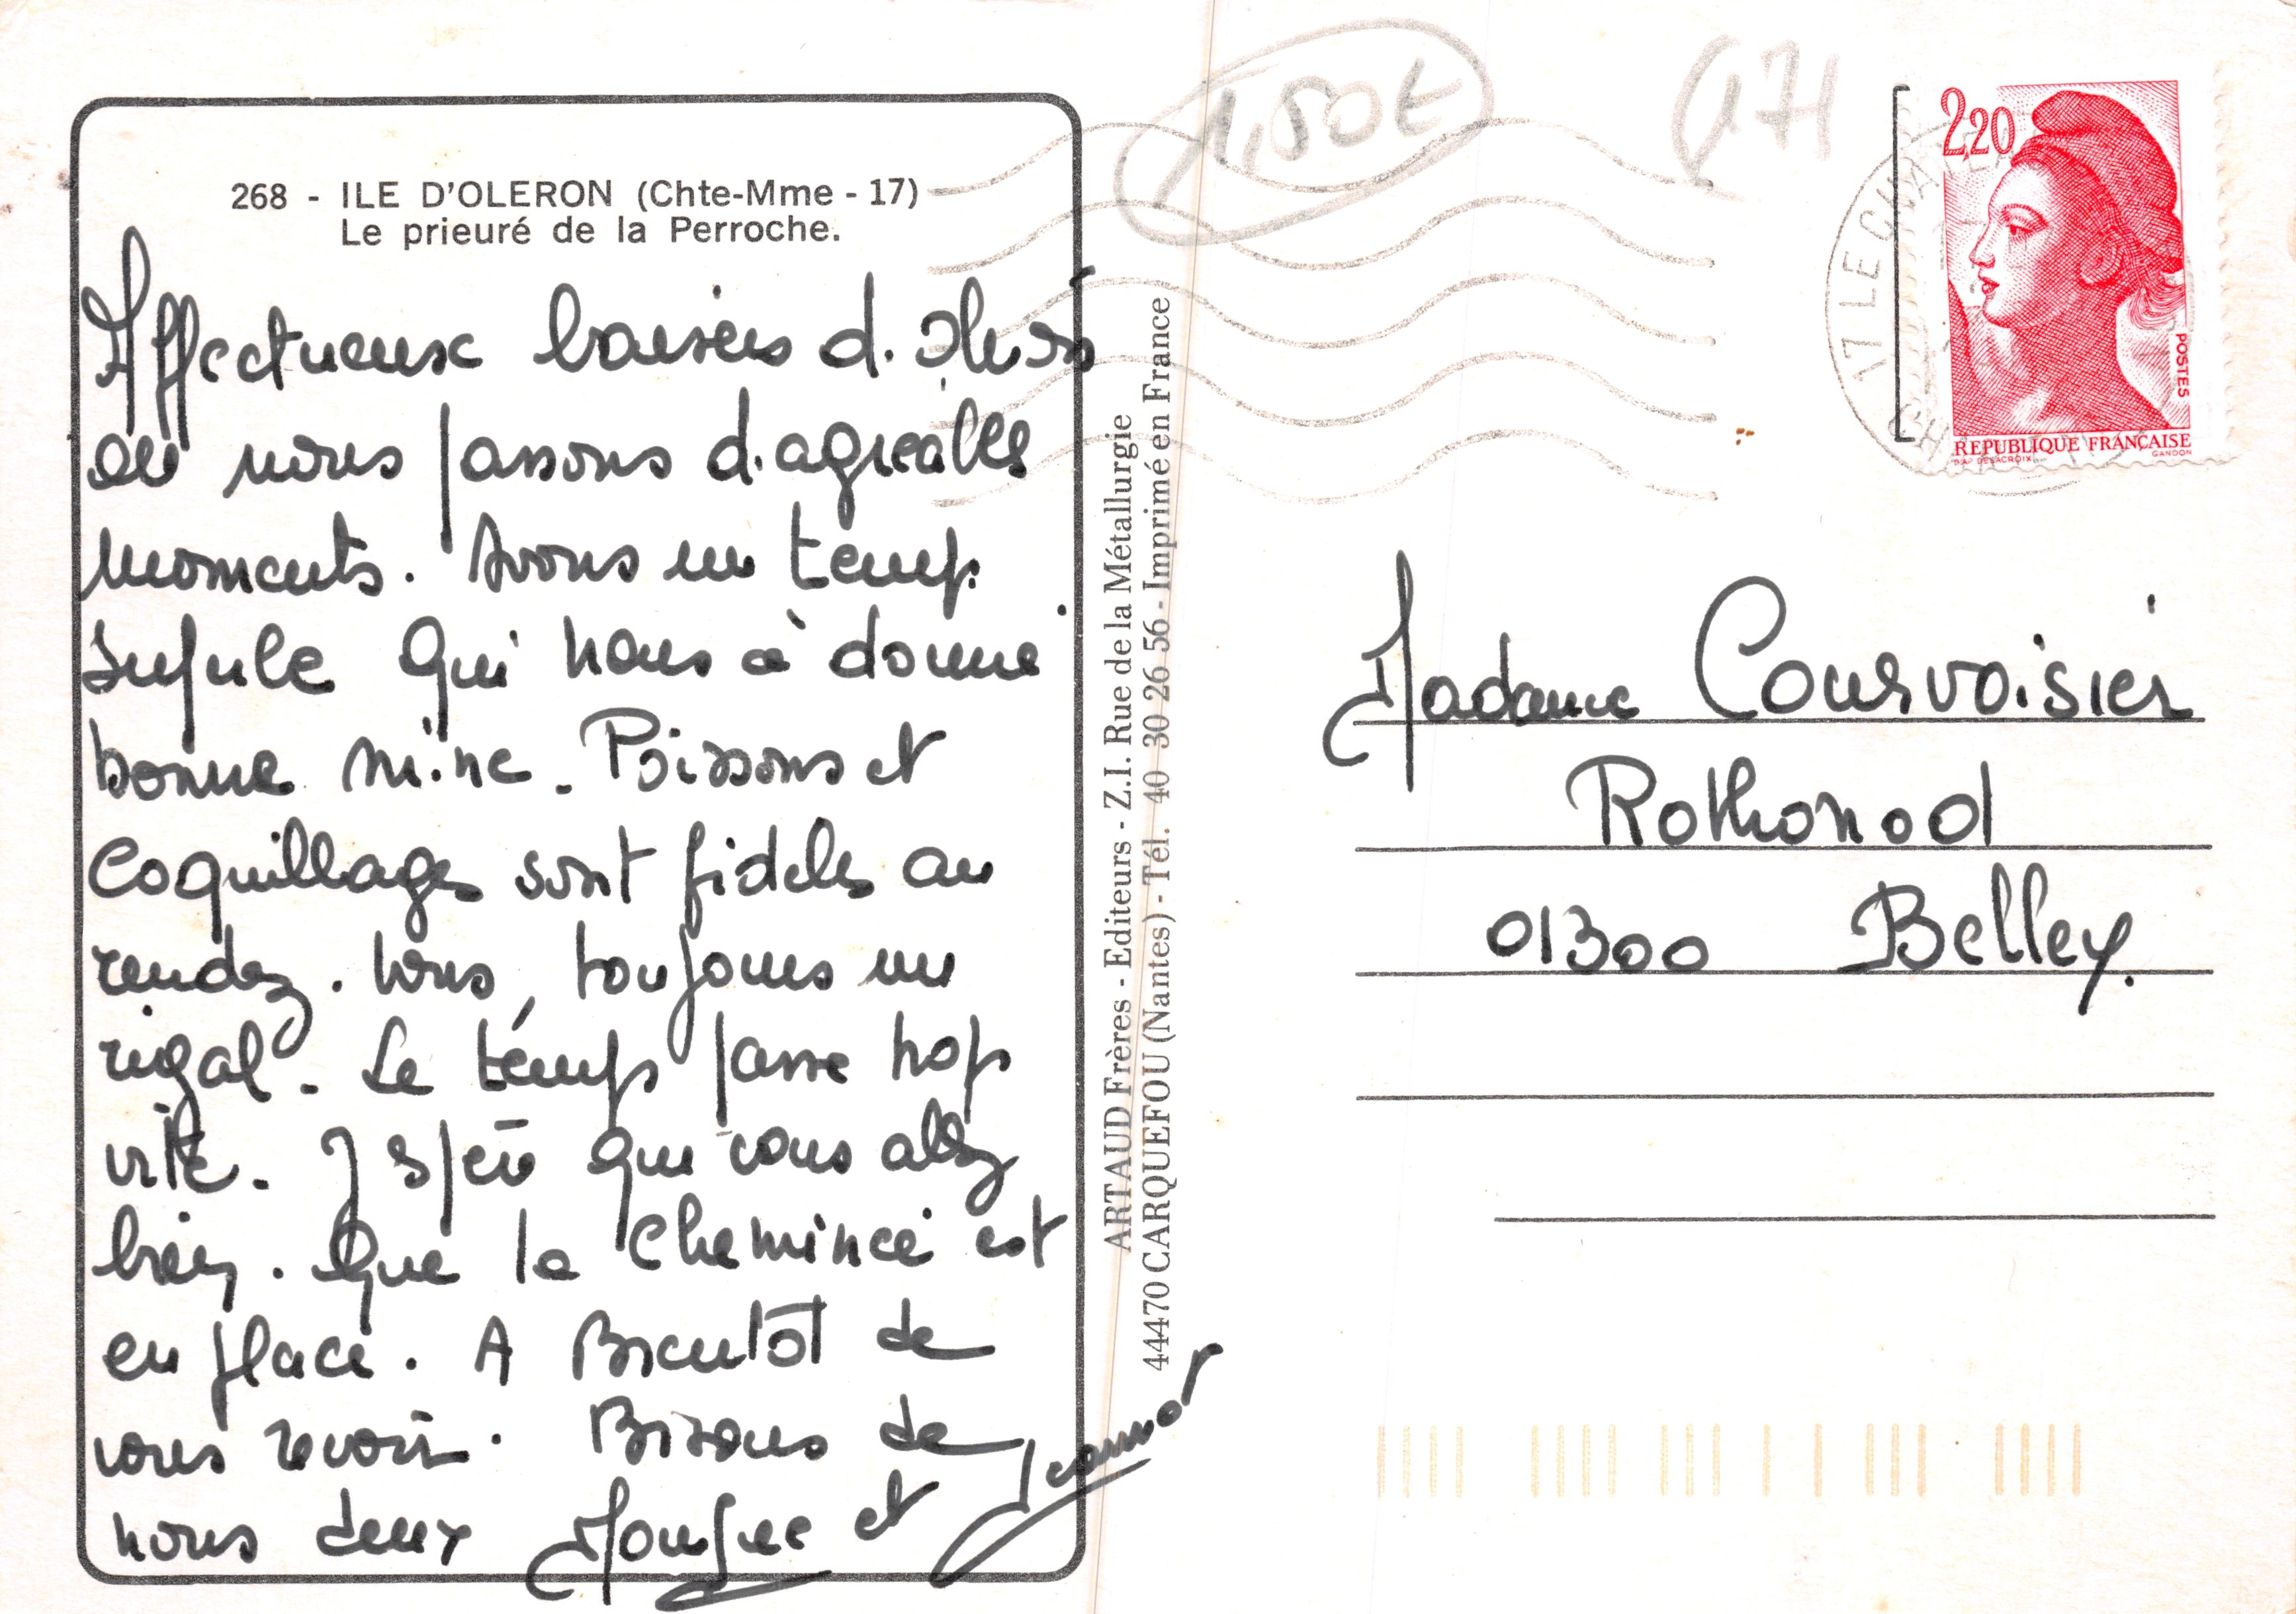 268 - ILE D'OLERON (Chte-Mme - 17)
Le prieuré de la Perroche.
Affectueux baisers d.
où nous passons d.agreables
moments. Avons un temps
superbe qui nous à donné
bonne mine. Poissons et
coquillages sont fideles au
rendez.vous, toujours un
régal. Le temps passe trop
vite. J espère que vous allez
bien. Que la cheminée est
en place. A Bientôt de
vous revoir. Bisous de
nous deux et
ARTAUD Frères - Editeurs - Z.I. Rue de la Métallurgie
44470 CARQUEFOU (Nantes) - Tél. 40 30 26 56 - Imprimé en France
1,50€
17 LE CHATE
2,20
POSTES
REPUBLIQUE FRANÇAISE
D'AP. DELACROIX
GANDON
Madame Courvoisier
Rothonod
01300 Belley.